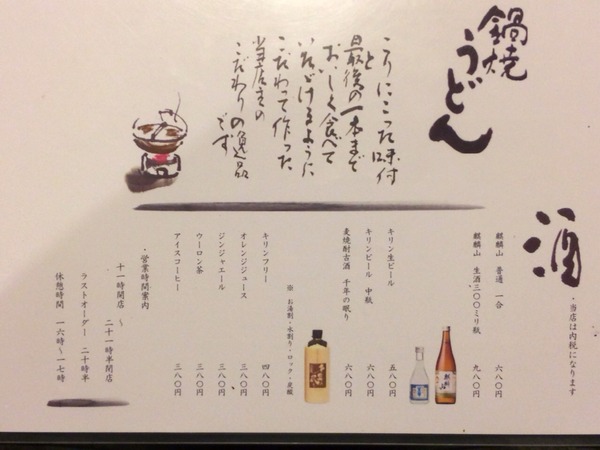 鍋焼
うどん
こりにこった味付
と
最後の一本まで
おいしく食べて
いただけるように
こだわって作った
当店主の
こだわりの逸品
です
酒
・当店は内税になります
麒麟山 普通 一合 六八〇円
麒麟山 生酒 三〇〇ミリ瓶 九八〇円
キリン生ビール 五八〇円
キリンビール 中瓶 六八〇円
麦焼酎古酒 千年の眠り 六八〇円
※ お湯割・水割り・ロック・炭酸
キリンフリー 四八〇円
オレンジジュース 三八〇円
ジンジャエール 三八〇円
ウーロン茶 三八〇円
アイスコーヒー 三八〇円
・営業時間案内
十一時開店 〜 二十一時半閉店
ラストオーダー 二十時半
休憩時間 一六時〜一七時